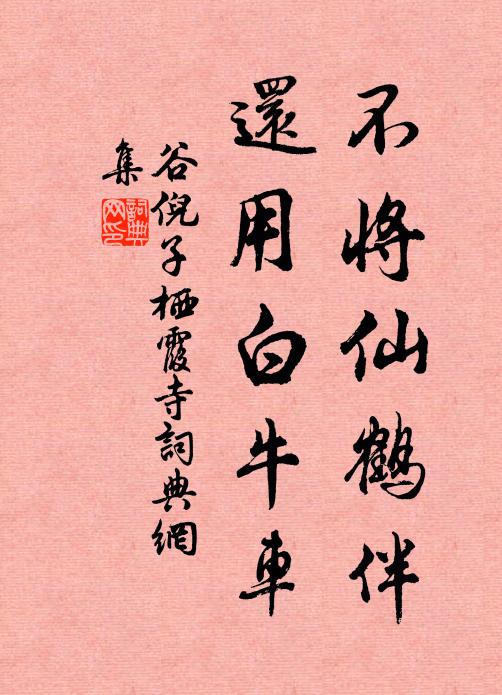 不將仙鶴伴
還用白牛車
谷倪子栖霞寺詞典網
集
詞典
网印